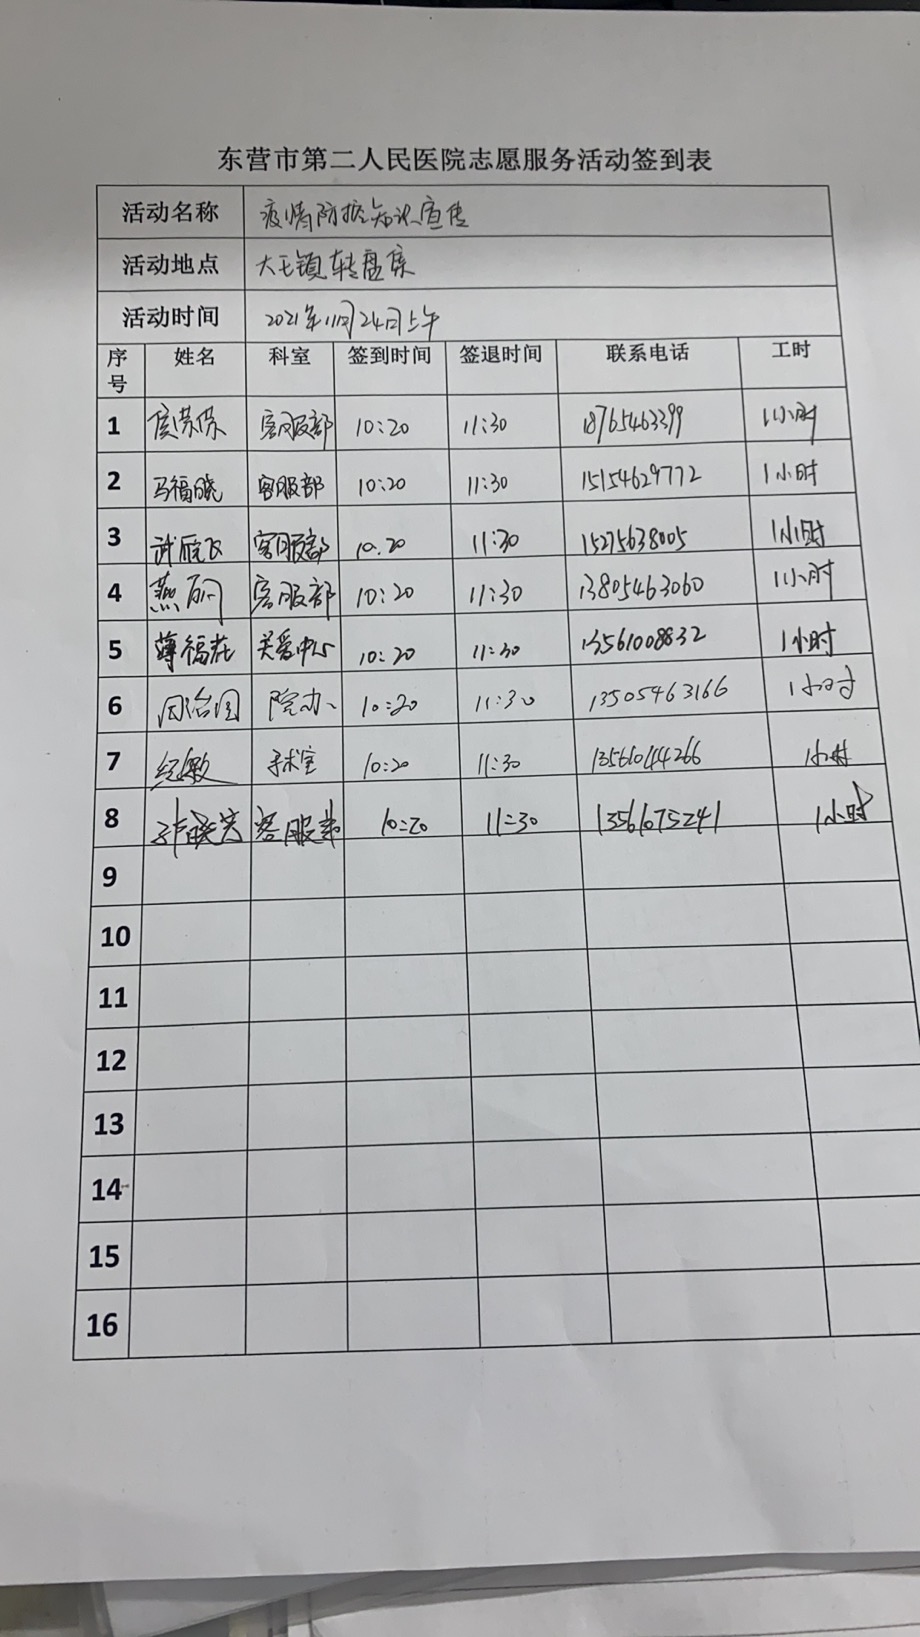 东营市第二人民医院志愿服务活动签到表
活动名称 疫情防控知识宣传
活动地点 大王镇转盘集
活动时间 2021年11月24日上午
序号 姓名 科室 签到时间 签退时间 联系电话 工时
1 客服部 10:20 11:30 18765463399 1小时
2 马福晓 客服部 10:20 11:30 15154629772 1小时
3 武雁飞 客服部 10.20 11:30 15275638005 1小时
4 燕丽 客服部 10:20 11:30 13805463060 1小时
5 薄福花 关爱中心 10:20 11:30 13561008832 1小时
6 周治国 院办 10:20 11:30 13505463166 1小时
7 敏 手术室 10:20 11:30 13561044266 1小时
8 客服部 10:20 11:30 13561075241 1小时
9
10
11
12
13
14
15
16